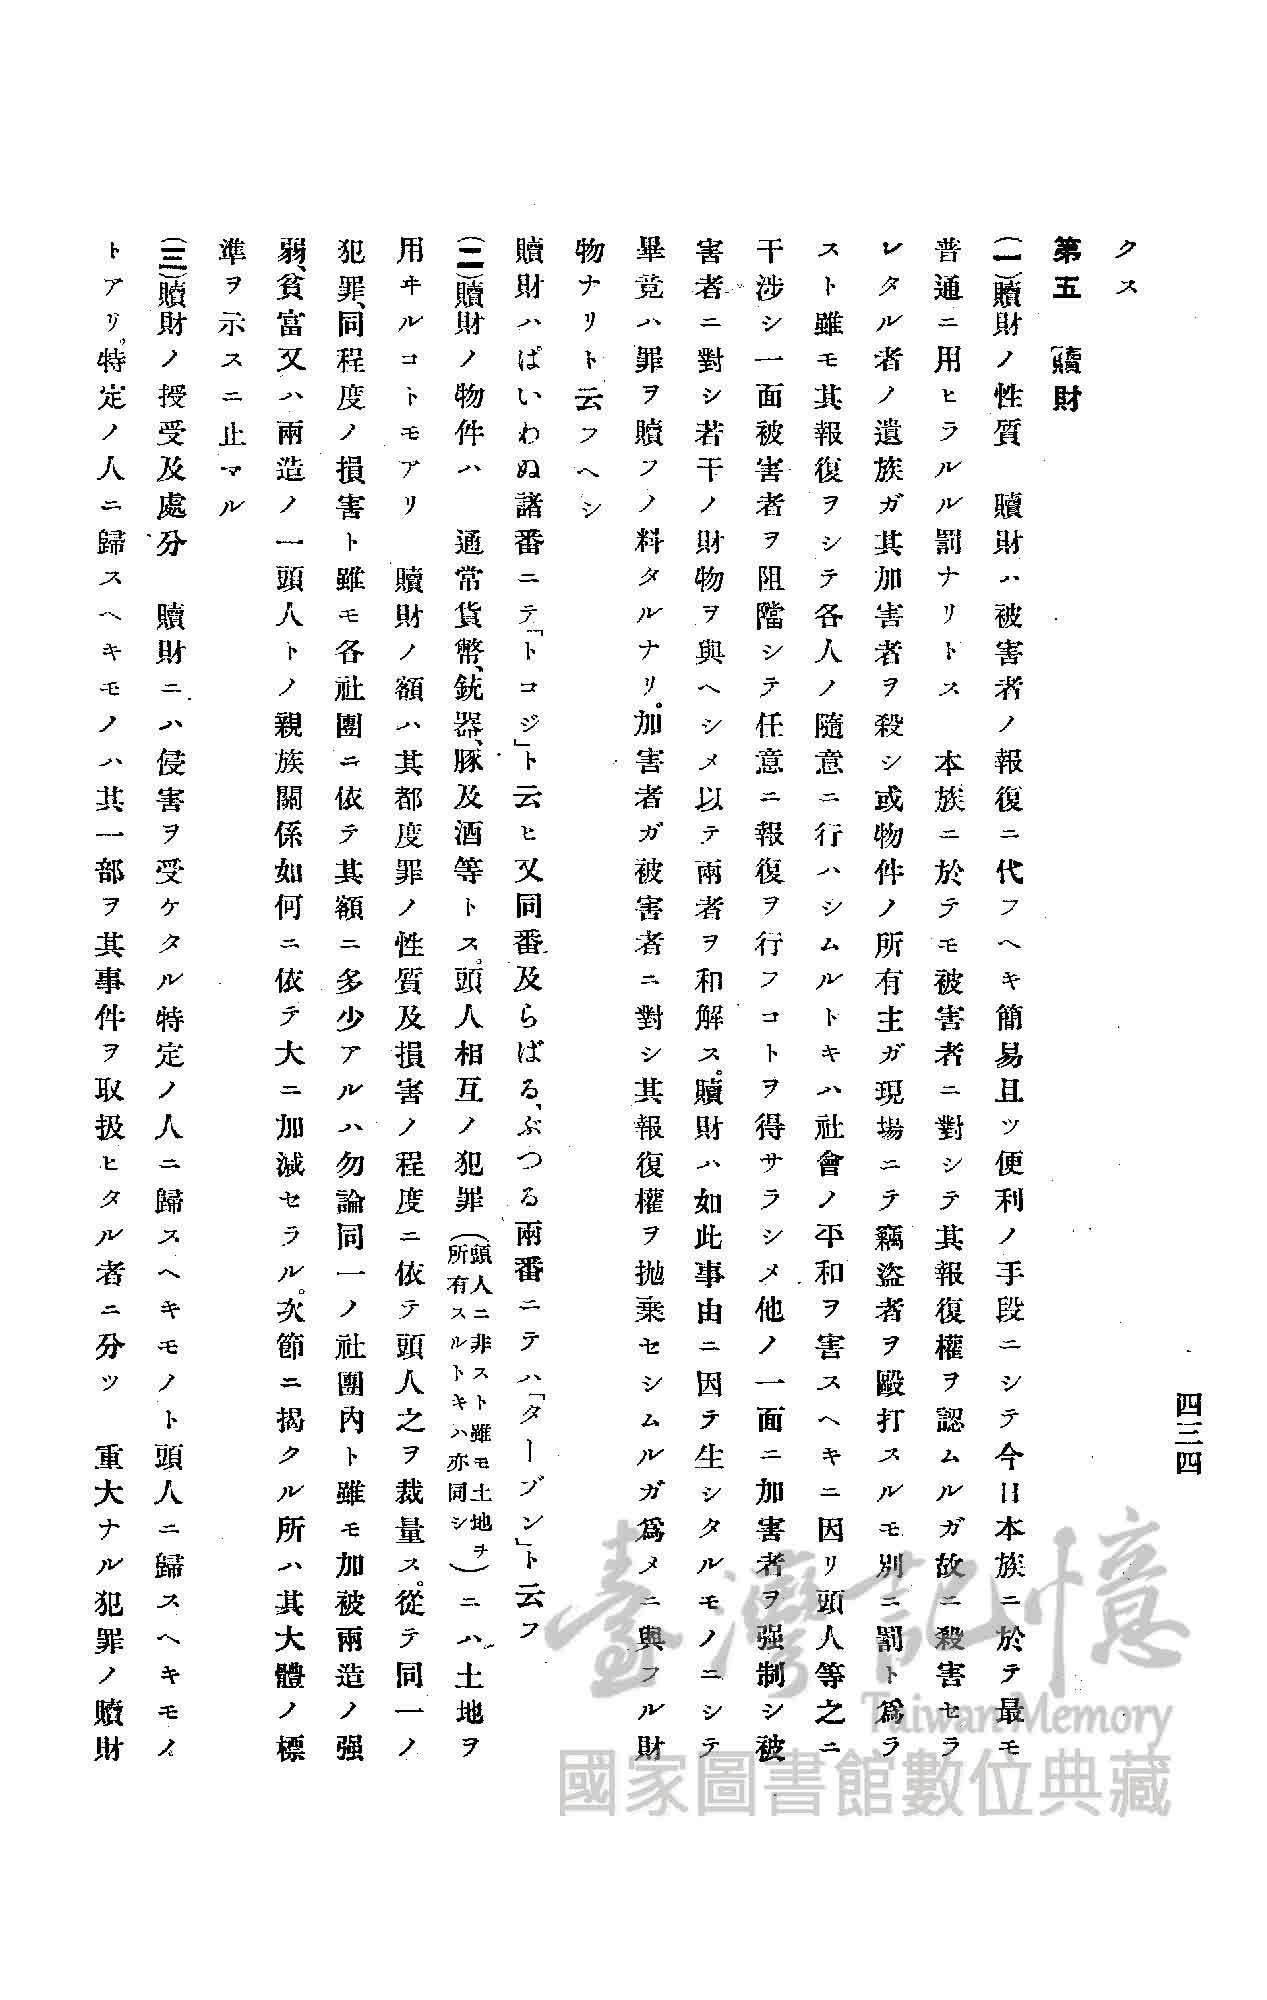 クス
第五　贖財
(一)贖財ノ性質　贖財ハ被害者ノ報復ニ代フヘキ簡易且ツ便利ノ手段ニシテ今日本族ニ於テ最モ
普通ニ用ヒラルル罰ナリトス　本族ニ於テモ被害者ニ對シテ其報復權ヲ認ムルガ故ニ殺害セラ
レタル者ノ遺族ガ其加害者ヲ殺シ或物件ノ所有主ガ現場ニテ竊盜者ヲ毆打スルモ別ニ罰ト爲ラ
スト雖モ其報復ヲシテ各人ノ隨意ニ行ハシムルトキハ社會ノ平和ヲ害スヘキニ因リ頭人等之ニ
干涉シ一面被害者ヲ阻擋シテ任意ニ報復ヲ行フコトヲ得サラシメ他ノ一面ニ加害者ヲ强制シ被
害者ニ對シ若干ノ財物ヲ與ヘシメ以テ兩者ヲ和解ス。贖財ハ如此事由ニ因テ生シタルモノニシテ
畢竟ハ罪ヲ贖フノ料タルナリ。加害者ガ被害者ニ對シ其報復權ヲ抛棄セシムルガ爲メニ與フル財
物ナリト云フヘシ
贖財ハぱいわぬ諸番ニテ「トコジ」ト云ヒ又同番及らばる、ぶつる兩番ニテハ「ターブン」ト云フ
(二)贖財ノ物件ハ　通常貨幣、銃器、豚及酒等トス。頭人相互ノ犯罪(頭人ニ非スト雖モ土地ヲ所有スルトキハ亦同シ)ニハ土地ヲ
用ヰルコトモアリ　贖財ノ額ハ其都度罪ノ性質及損害ノ程度ニ依テ頭人之ヲ裁量ス。從テ同一ノ
犯罪、同程度ノ損害ト雖モ各社團ニ依テ其額ニ多少アルハ勿論同一ノ社團內ト雖モ加被兩造ノ强
弱、貧富又ハ兩造ノ一頭人トノ親族關係如何ニ依テ大ニ加減セラル。次節ニ揭クル所ハ其大體ノ標
準ヲ示スニ止マル
(三)贖財ノ授受及處分　贖財ニハ侵害ヲ受ケタル特定ノ人ニ歸スヘキモノト頭人ニ歸スヘキモノ
トアリ。特定ノ人ニ歸スヘキモノハ其一部ヲ其事件ヲ取扱ヒタル者ニ分ツ　重大ナル犯罪ノ贖財
四三四
臺灣記憶
Taiwan Memory
國家圖書館數位典藏